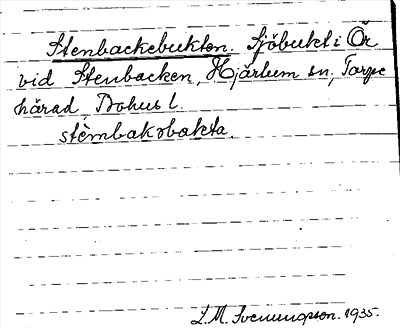 Stenbackebukten. Sjöbukt i Ör
vid Stenbacken, Hjärtum sn, Torpe
härad, Bohus l.
stèmbakəbəkta.
L.M. Svenungsson. 1935.